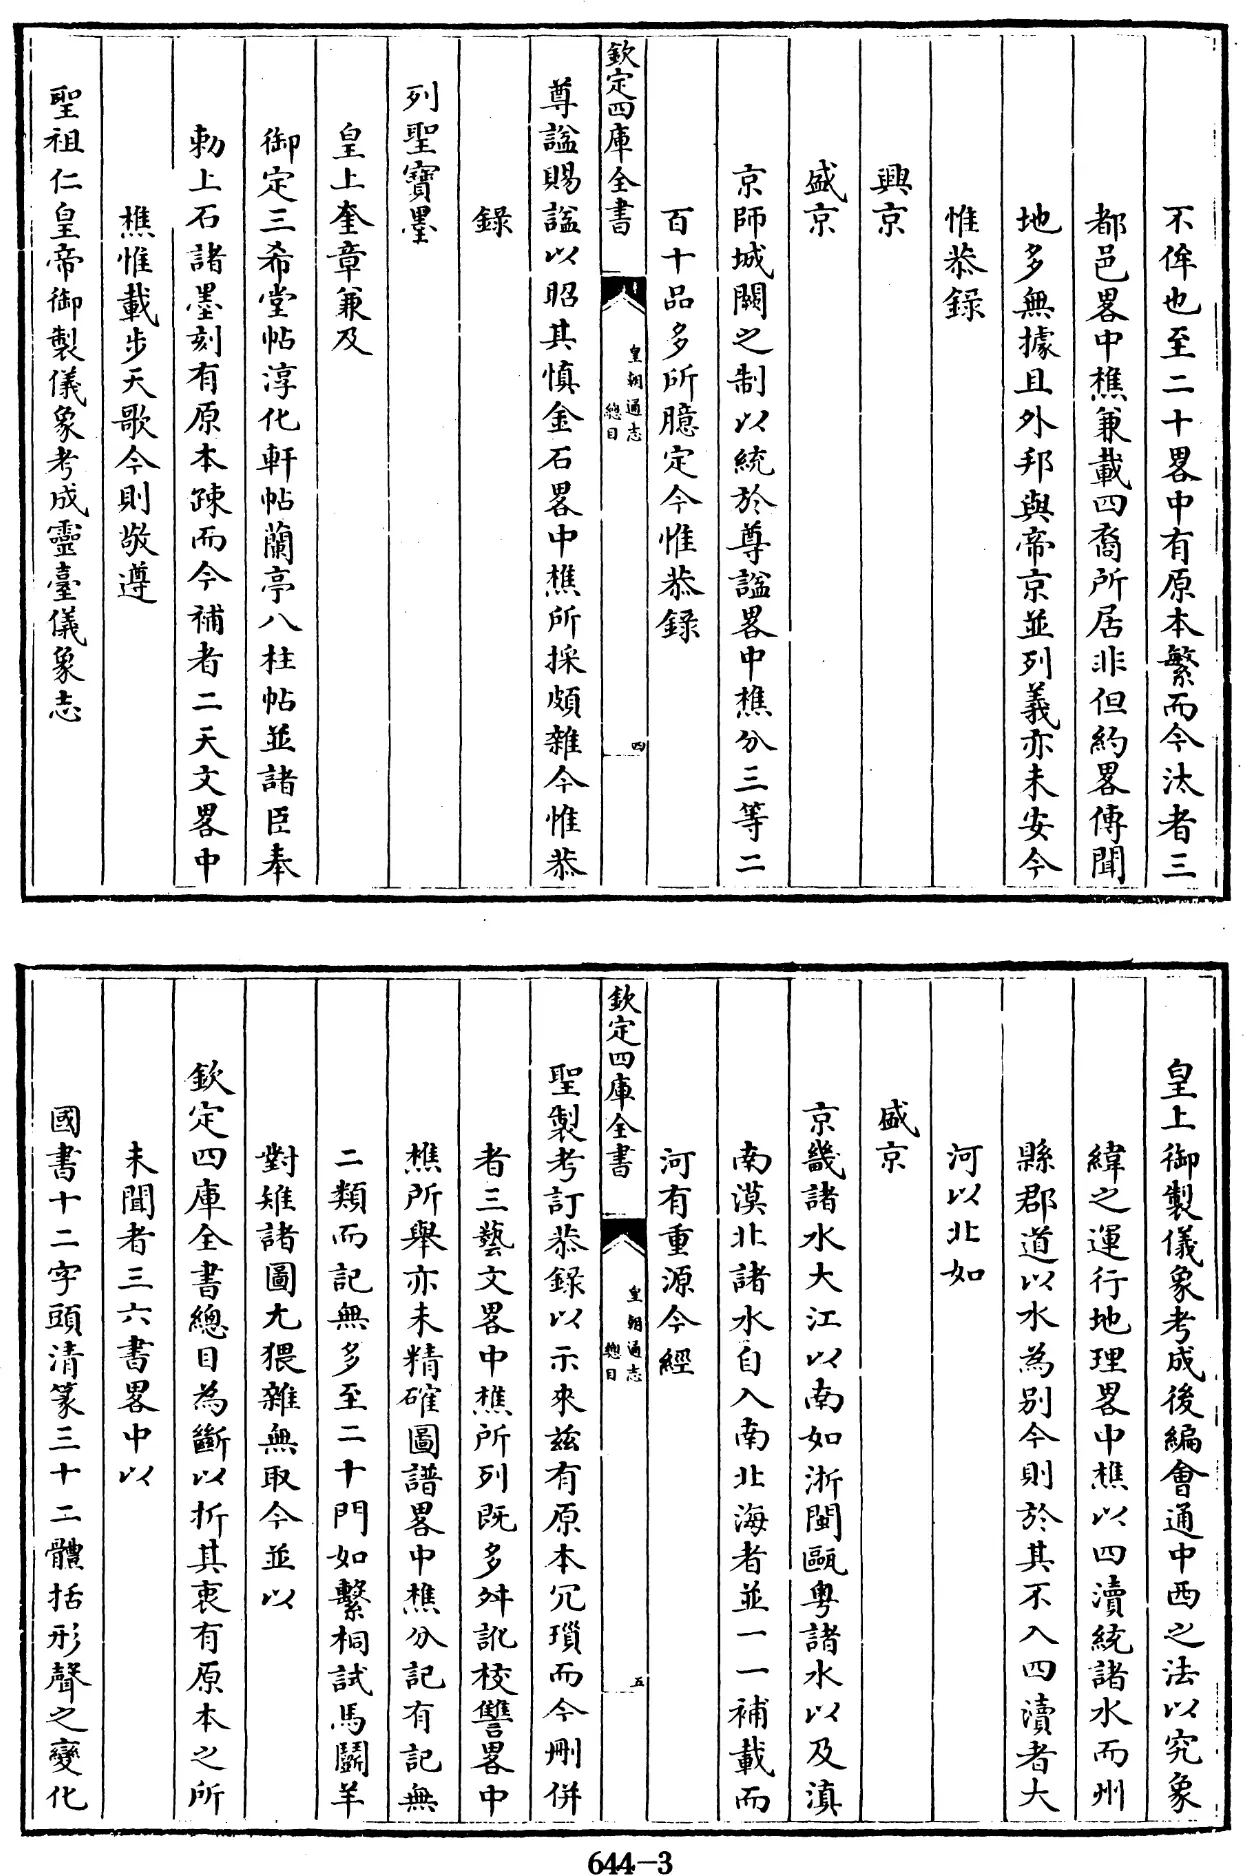 不侔也至二十畧中有原本繁而今汰者三
都邑畧中樵兼載四裔所居非但約畧傳聞
地多無據且外邦與帝京並列義亦未安今
惟恭錄
興京
盛京
京師城闕之制以統於尊諡畧中樵分三等二
百十品多所臆定今惟恭錄
欽定四庫全書
皇朝通志
總目
四
尊諡賜諡以昭其慎金石畧中樵所採頗雜今惟恭
錄
列聖寶墨
皇上奎章兼及
御定三希堂帖淳化軒帖蘭亭八柱帖並諸臣奉
勅上石諸墨刻有原本疎而今補者二天文畧中
樵惟載步天歌今則敬遵
聖祖仁皇帝御製儀象考成靈臺儀象志
皇上御製儀象考成後編會通中西之法以究象
緯之運行地理畧中樵以四瀆統諸水而州
縣郡道以水為別今則於其不入四瀆者大
河以北如
盛京
京畿諸水大江以南如浙閩甌粵諸水以及滇
南漠北諸水自入南北海者並一一補載而
河有重源今經
欽定四庫全書
皇朝通志
總目
五
聖製考訂恭錄以示來兹有原本冗瑣而今刪併
者三藝文畧中樵所列既多舛訛校讐畧中
樵所舉亦未精確圖譜畧中樵分記有記無
二類而記無多至二十門如繫桐試馬鬭羊
對雉諸圖尤猥雜無取今並以
欽定四庫全書總目為斷以折其衷有原本之所
未聞者三六書畧中以
國書十二字頭清篆三十二體括形聲之變化
644—3